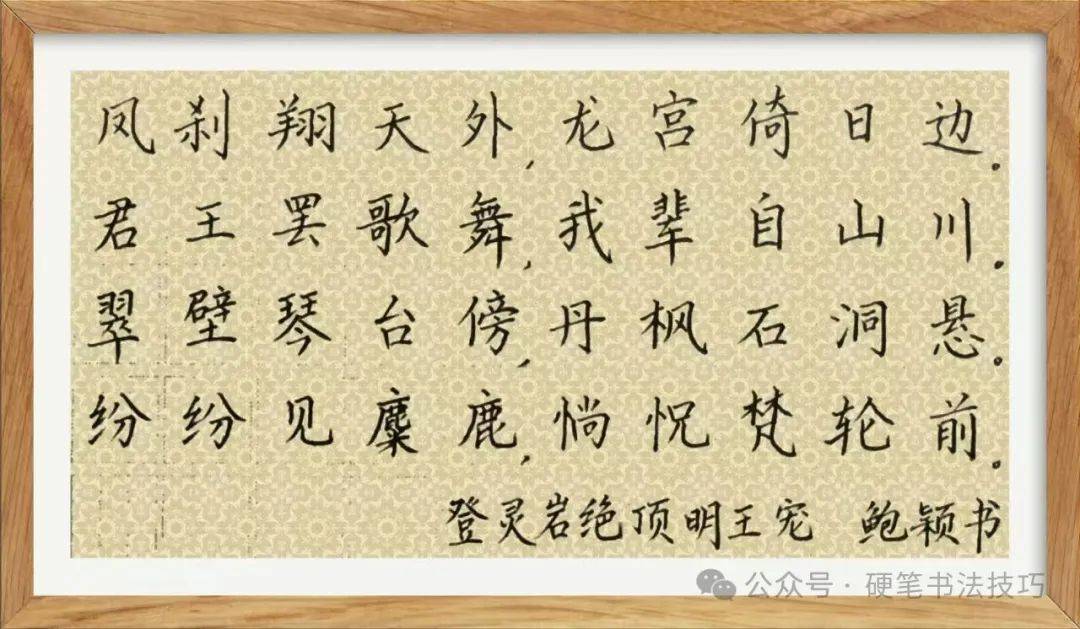 凤刹翔天外,龙宫倚日边。
君王罢歌舞,我辈自山川。
翠壁琴台傍,丹枫石洞悬。
纷纷见麋鹿,惝怳梵轮前。
登灵岩绝顶明王宠 鲍颖书
公众号·硬笔书法技巧